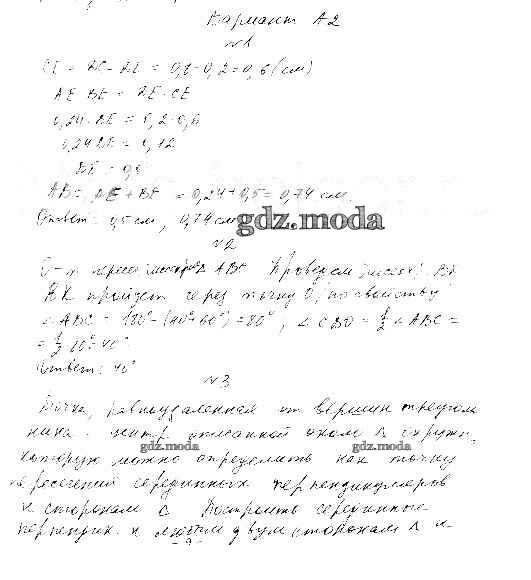 Вариант А2
№1
CE = DC - DE = 0,8 - 0,2 = 0,6 (см)
AE · BE = DE · CE
0,24 · BE = 0,2 · 0,6
0,24 BE = 0,12
BE = 0,5
AB = AE + BE = 0,24 + 0,5 = 0,74 см.
Ответ: 0,5 см, 0,74 см
gdz.moda
№2
О - т. перес. биссектрис ABC. Проведем биссек. BK
BK пройдет через точку О, по свойству
∠ABC = 180° - (40° + 60°) = 80°, ∠CBO = 1/2 ∠ABC =
= 1/2 80° = 40°
Ответ: 40°
№3
Точка, равноудаленная от вершин треуголь
ника - центр описанной около Δ окружн.,
gdz.moda gdz.moda
которую можно определить как точку
пересечений серединных перпендикуляров
к сторонам Построить серединные
перпендик. к любым двум сторонам Δ и